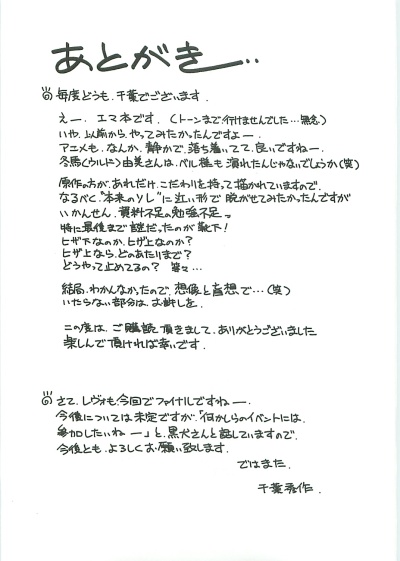 あとがき…
毎度どうも、千葉でございます.
えー、エマ本です. (トーンまで行けませんでした…無念)
いや、以前から、やってみたかったんですよー.
アニメも、なんか、静かで、落ち着いてて、良いですねー.
冬馬(ウルド)由美さんは、ベル役も演れたんじゃないでしょうか(笑)
原作の方が、あれだけ、こだわりを持って描かれていますので、
なるべく"本来のソレ"に近い形で脱がせてみたかったんですが
いかんせん、資料不足の勉強不足
特に最後まで謎だったのが靴下!
ヒザ下なのか、ヒザ上なのか?
ヒザ上なら、どのあたりまで?
どうやって止めてるの? 等々…
結局、わかんなかったので、想像と妄想で…(笑)
いたらない部分は、お許しを.
この度は、ご購読頂きまして、ありがとうございました
楽しんで頂ければ幸いです.
さて、レヴォも、今回でファイナルですねー.
今後については未定ですが、「何かしらのイベントには、
参加したいねー」と、黒犬さんと話していますので、
今後とも、よろしくお願い致します.
ではまた.
千葉秀作.